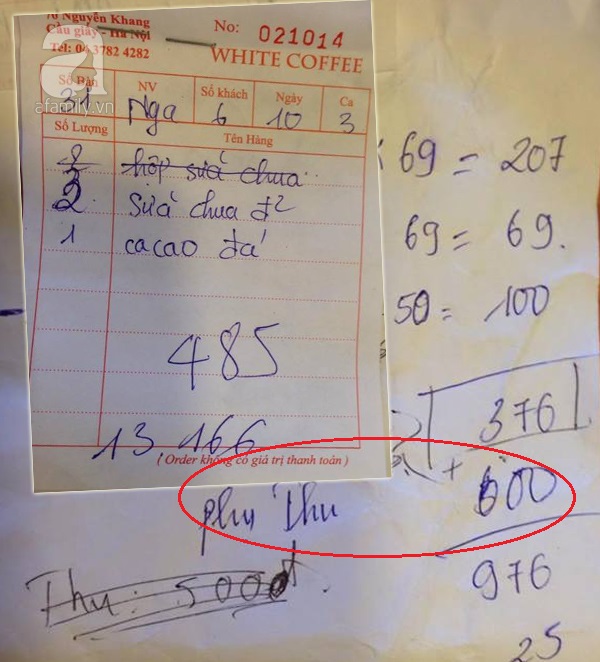 76 Nguyễn Khang
Cầu giấy - Hà Nội
Tel: 04 3782 4282
No: 021014
WHITE COFFEE
Số Bàn NV Số khách Ngày Ca
21 Nga 6 10 3
afamily.vn
Số Lượng Tên Hàng
hộp sữa chua
2 sữa chua đ2
1 cacao đá
485
13 166
( Order không có giá trị thanh toán )
69 = 207
69 = 69.
50 = 100
376
phụ thu + 600
976
Thu: 500đ
25